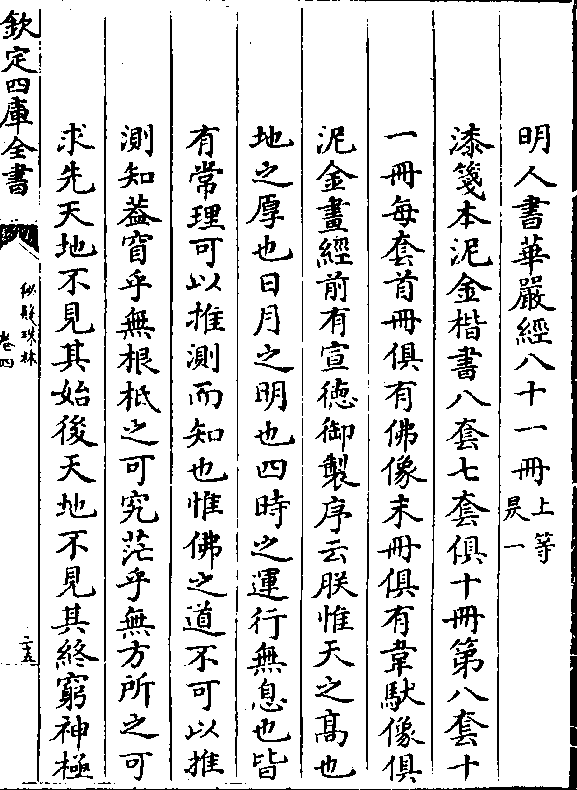 明人書華嚴經八十一冊
上等
昃一
漆箋本泥金楷書八套七套俱十冊第八套十
一冊每套首冊俱有佛像末冊俱有韋馱像俱
泥金畫經前有宣德御製序云朕惟天之髙也
地之厚也日月之明也四時之運行無息也皆
有常理可以推測而知也惟佛之道不可以推
測知葢窅乎無根柢之可究茫乎無方所之可
求先天地不見其始後天地不見其終窮神極
欽定四庫全書
秘殿珠林
卷四
二十五